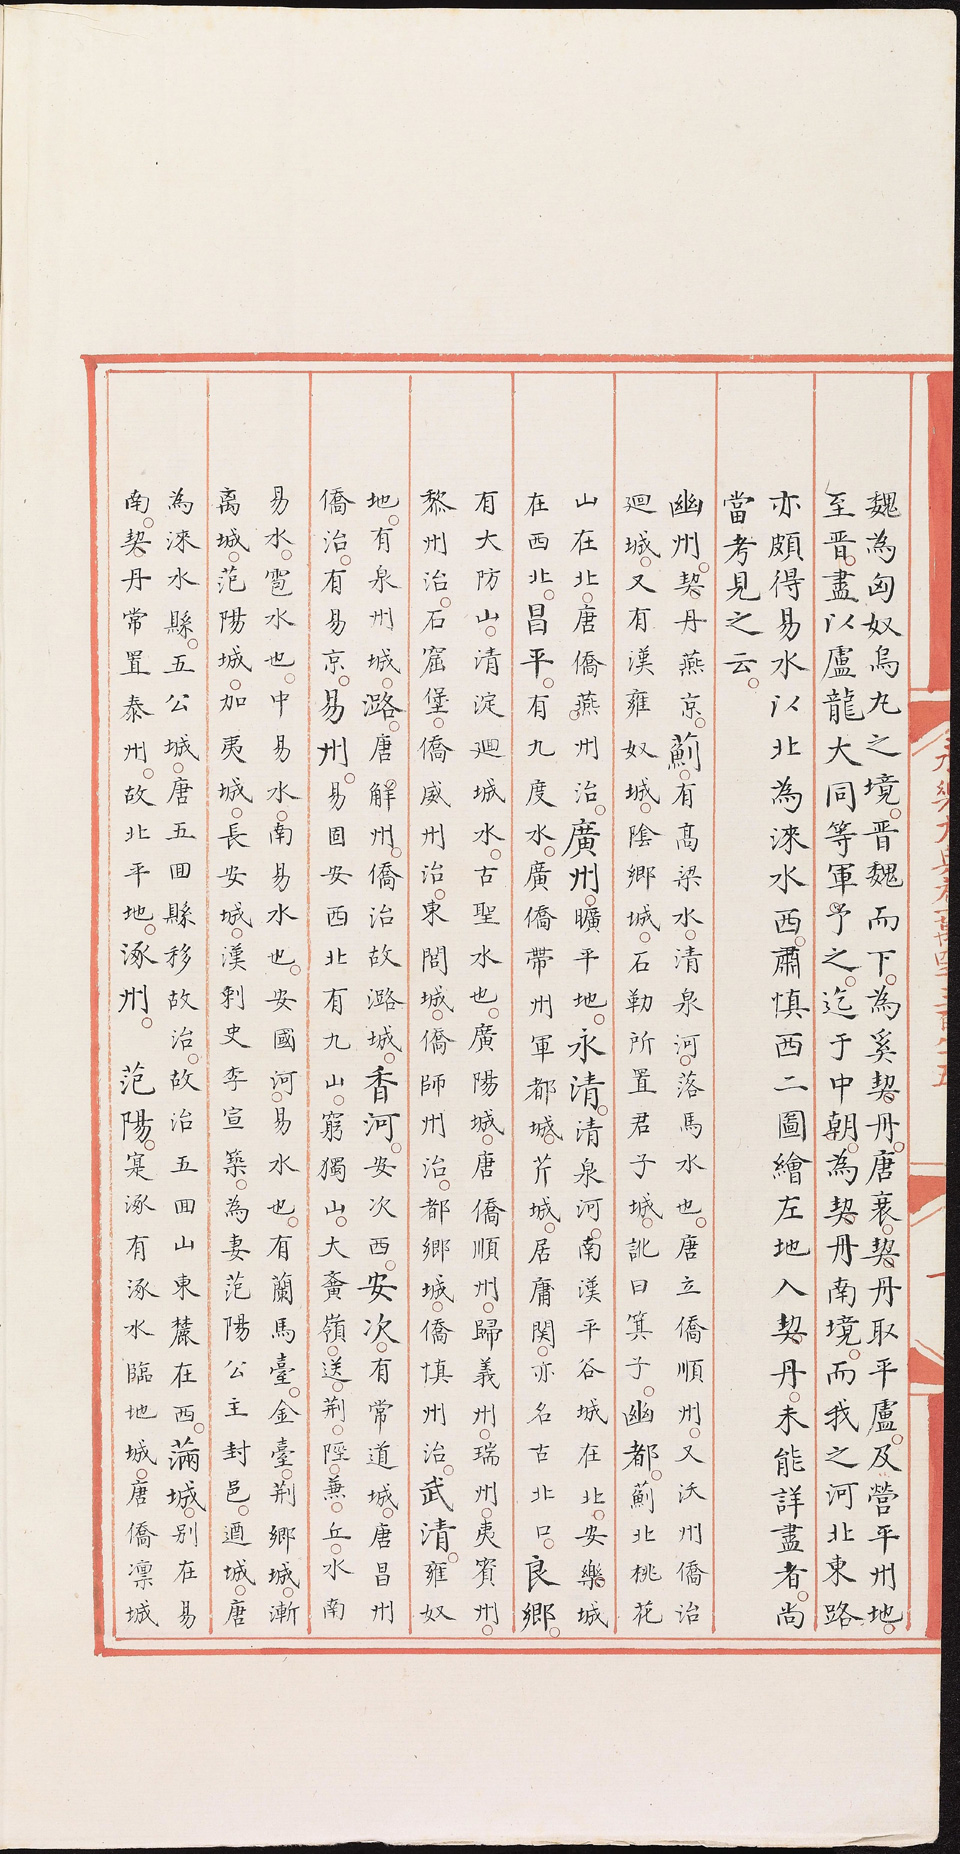 魏為匈奴烏丸之境。晉魏而下。為奚契丹。唐衰。契丹取平盧。及營平州地。
至晉。盡以盧龍大同等軍予之。迄于中朝。為契丹南境。而我之河北東路
亦頗得易水以北為淶水西。肅慎西二圖繪左地入契丹。未能詳盡者。尚
當考見之云。
幽州。契丹燕京。薊。有高梁水。清泉河。落馬水也。唐立僑順州。又沃州僑治
迴城。又有漢雍奴城。陰鄉城。石勒所置君子城。訛曰箕子。幽都。薊北桃花
山在北。唐僑燕州治。廣州。曠平地。永清。清泉河。南漢平谷城在北。安樂城
在西北。昌平。有九度水。廣僑帶州軍都城。芹城。居庸関。亦名古北口。良鄉。
有大防山。清淀廻城水。古聖水也。廣陽城。唐僑順州。歸義州。瑞州。夷賓州。
黎州治。石窟堡。僑威州治。東閭城。僑師州治。都鄉城。僑慎州治。武清。雍奴
地。有泉州城。潞。唐解州。僑治故潞城。香河。安次西。安次。有常道城。唐昌州
僑治。有易京。易州。易固安西北有九山。窮獨山。大賡嶺。送。荆。陘。蒹。丘。水南
易水。雹水也。中易水。南易水也。安國河。易水也。有蘭馬臺。金臺。荆鄉城。漸
离城。范陽城。加夷城。長安城。漢刺史李宣築。為妻范陽公主封邑。遒城。唐
為淶水縣。五公城。唐五囬縣移故治。故治五囬山東麓在西。滿城。別在易
南。契丹常置泰州。故北平地。涿州。范陽。寔涿有涿水臨地城。唐僑凛城